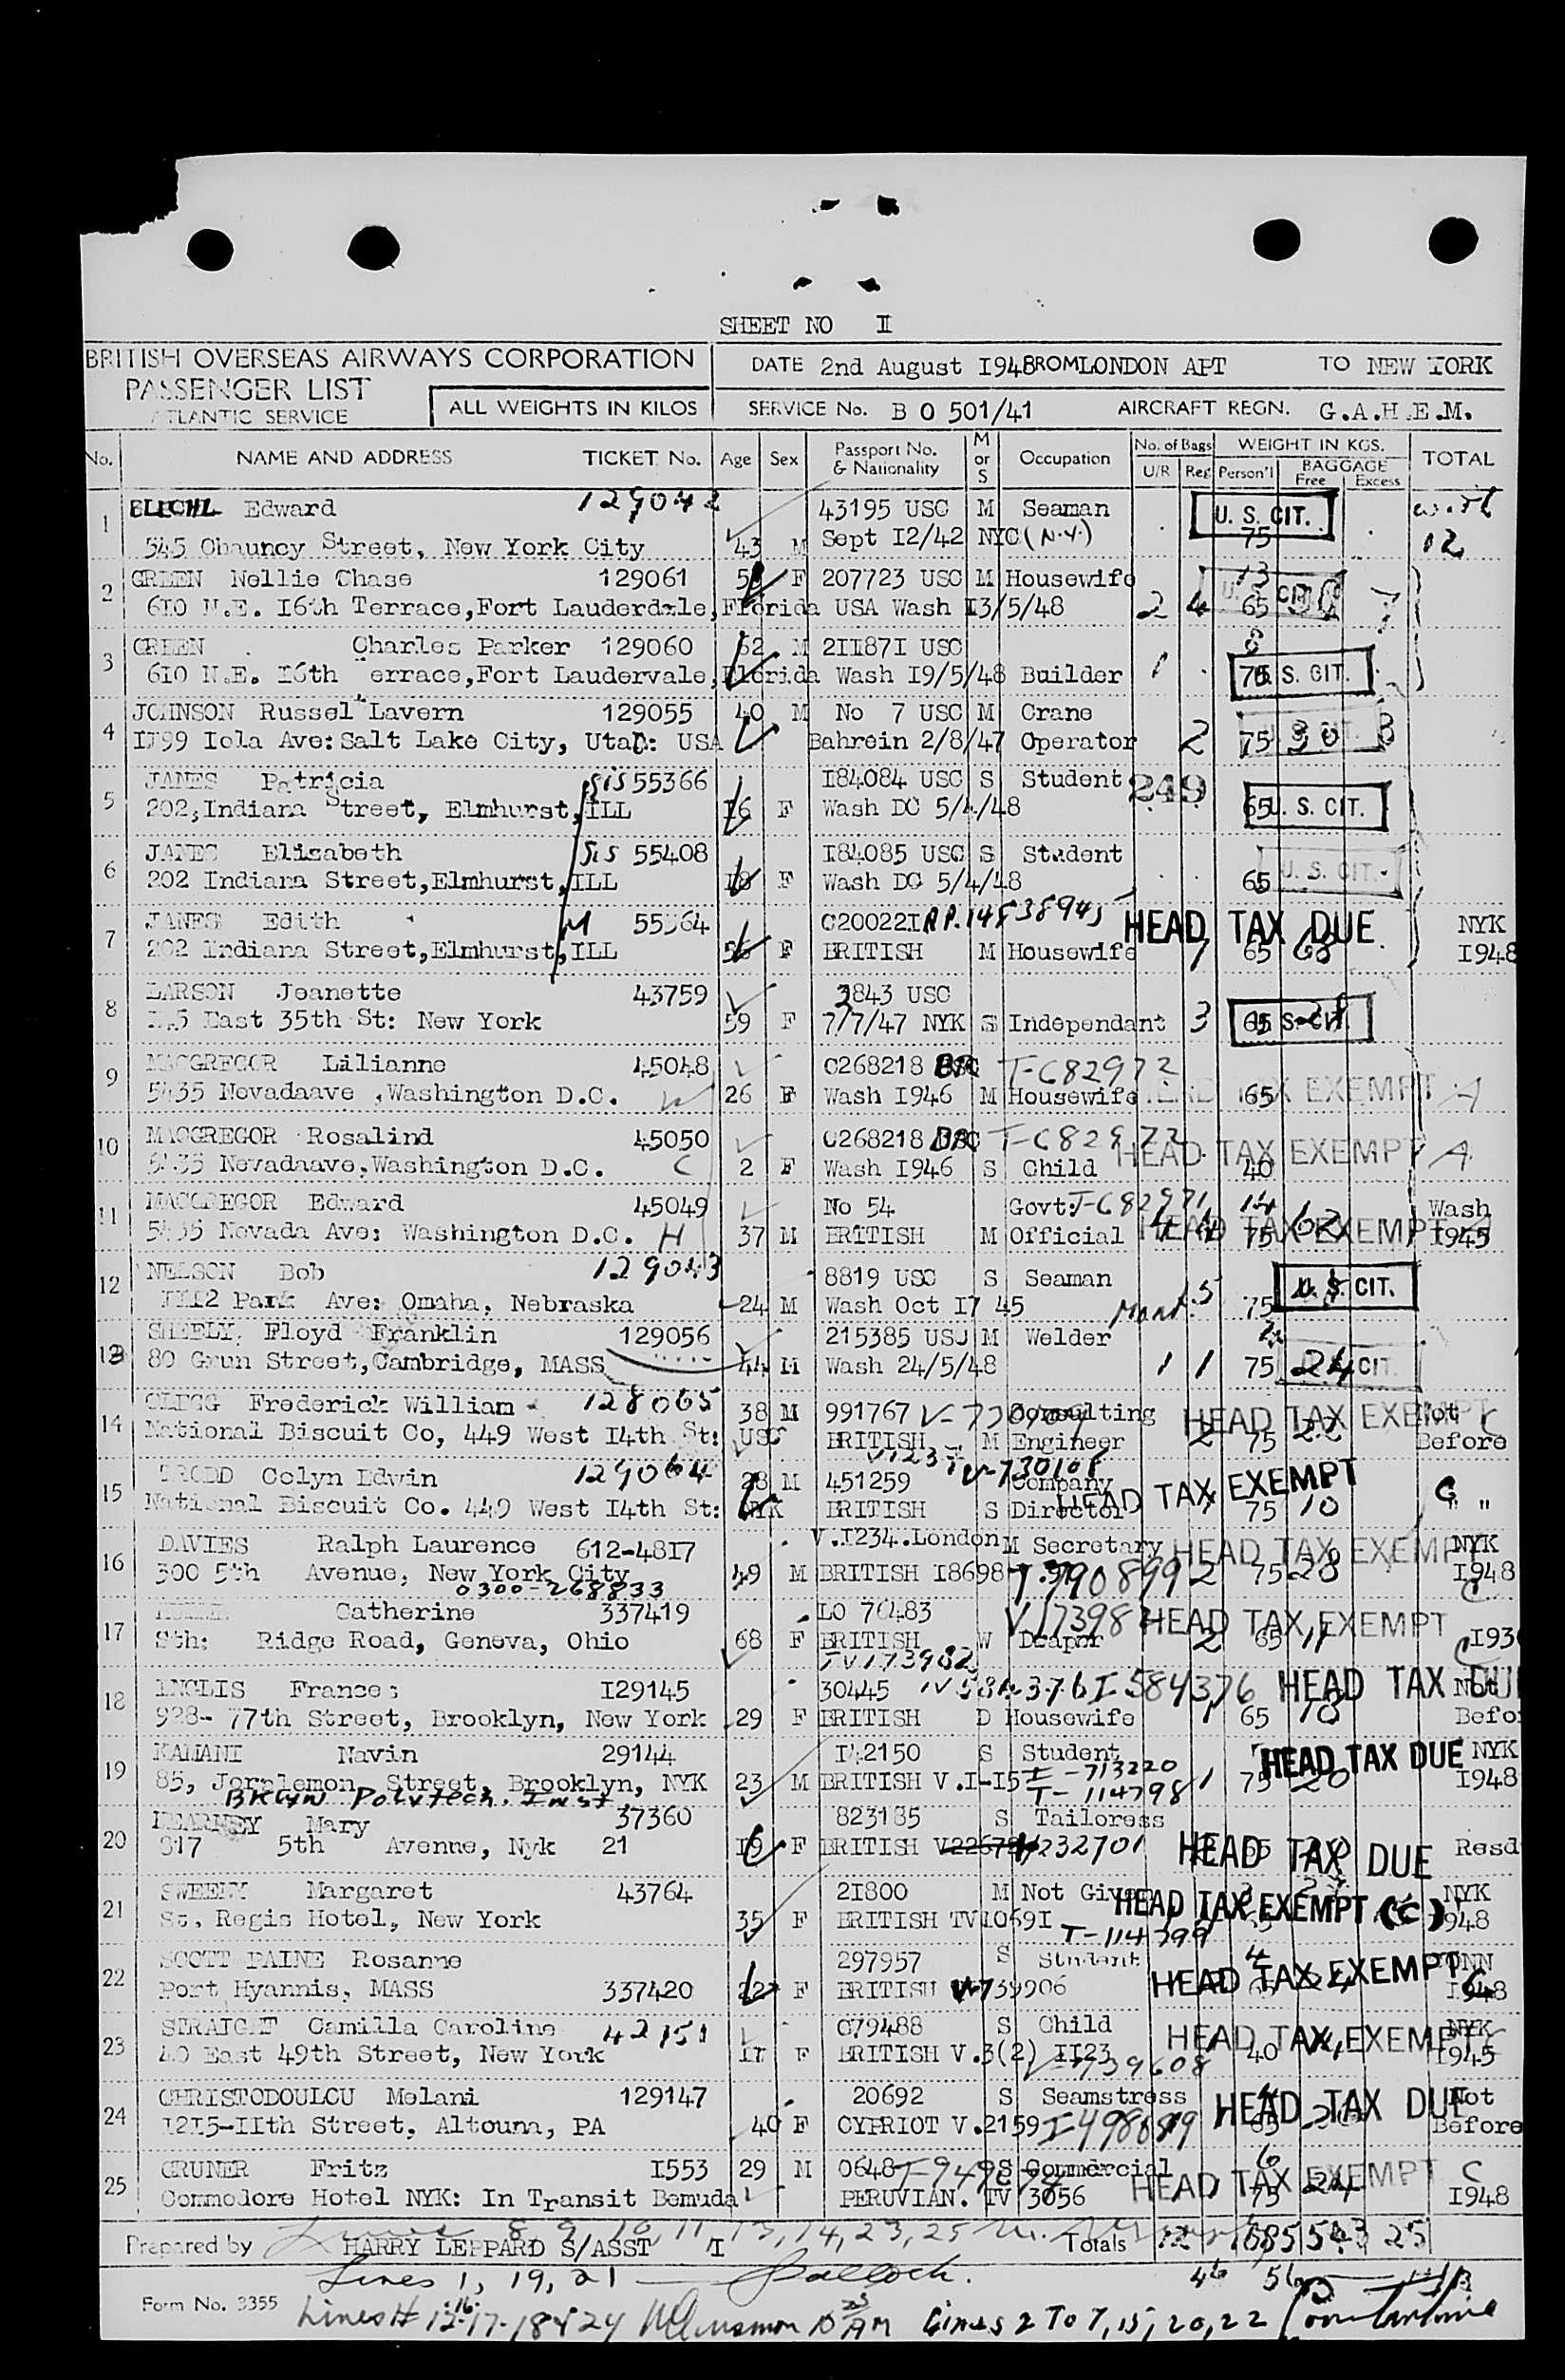 SHEET NO II
BRITISH OVERSEAS AIRWAYS CORPORATION
PASSENGER LIST
ATLANTIC SERVICE
ALL WEIGHTS IN KILOS
DATE 2nd August I948 ROM LONDON APT TO NEW YORK
SERVICE No. B O 501/41 AIRCRAFT REGN. G.A.H.E.M.
No. NAME AND ADDRESS TICKET No. Age Sex Passport No. & Nationality M or S Occupation No. of Bags U/R Reg WEIGHT IN KGS. Person'l BAGGAGE Free Excess TOTAL
1 Edward 129042 43195 USC M Seaman U. S. CIT. with
545 Chauncy Street, New York City 43 M Sept I2/42 NYC (N.Y.) 75 12
2 GREEN Nellie Chase 129061 F 207723 USC M Housewife 13
610 N.E. I6th Terrace, Fort Lauderdale, Florida USA Wash I3/5/48 2 4 65
3 GREEN Charles Parker 129060 62 M 2II87I USC 8
610 N.E. I6th errace, Fort Laudervale, Florida Wash I9/5/48 Builder 1 75 U. S. CIT.
4 JOHNSON Russel Lavern 129055 40 M No 7 USC M Crane
1I99 Iola Ave: Salt Lake City, Utah: USA Bahrein 2/8/47 Operator 2 75 30 3
5 JANES Patricia Sis 55366 I84084 USC S Student 249
202, Indiana Street, Elmhurst, ILL I6 F Wash DC 5/4/48 65 U. S. CIT.
6 JANES Elisabeth Sis 55408 I84085 USC S Student U. S. CIT.
202 Indiana Street, Elmhurst, ILL I8 F Wash DC 5/4/48 65
7 JANES Edith M 55364 C20022I HEAD TAX DUE NYK
202 Indiana Street, Elmhurst, ILL F BRITISH M Housewife 1 65 68 I948
8 LARSON Jeanette 43759 3843 USC
East 35th St: New York 59 F 7/7/47 NYK S Independant 3 65 U. S. CIT.
9 MACGREGOR Lilianne 45048 C268218 T-682972
5435 Nevadaave, Washington D.C. W 26 F Wash I946 M Housewife HEAD TAX EXEMPT 65 A
10 MACGREGOR Rosalind 45050 C268218 T-682972 HEAD TAX EXEMPT A
5435 Nevadaave, Washington D.C. C 2 F Wash I946 S Child 40
11 MACGREGOR Edward 45049 No 54 Govt: T-682971 14 Wash
5435 Nevada Ave: Washington D.C. H 37 M BRITISH M Official HEAD TAX EXEMPT 75 62 I945
12 NELSON Bob 129043 8819 USC S Seaman U. S. CIT.
III2 Park Ave: Omaha, Nebraska 24 M Wash Oct I7 45 75
13 SHEELY. Floyd Franklin 129056 215385 USC M Welder
80 Street, Cambridge, MASS 44 M Wash 24/5/48 1 1 75 24 CIT.
14 CLEGG Frederick William 128065 38 M 991767 Consulting HEAD TAX EXEMPT Not C
National Biscuit Co, 449 West I4th St: USC BRITISH M Engineer 2 75 22 Before
15 Colyn Edwin 129064 28 M 451259 V-730108 Company HEAD TAX EXEMPT C
National Biscuit Co. 449 West I4th St: NYK BRITISH S Director 75 10 " "
16 DAVIES Ralph Laurence 612-48I7 V.I234..London M Secretary HEAD TAX EXEMPT NYK
300 5th Avenue, New York City 49 M BRITISH I8698 T.990899 2 75 28 I948
0300-268833 C
17 Catherine 337419 LO 70483 HEAD TAX EXEMPT
Sth: Ridge Road, Geneva, Ohio 68 F BRITISH W 2 65 11 C
TV173982
18 INGLIS Frances I29145 30445 I 584376 HEAD TAX DUE Not
928- 77th Street, Brooklyn, New York 29 F BRITISH D Housewife 1 65 18 Befo
19 KAMANI Navin 29144 I42150 S Student HEAD TAX DUE NYK
85, Street, Brooklyn, NYK 23 M BRITISH V.I-I5 I-713220 1 75 20 I948
Bklyn Polytech. Inst. T-114798
20 KEARNEY Mary 37360 823185 S Tailoress
817 5th Avenue, Nyk 21 I9 F BRITISH V232701 HEAD TAX DUE Resd
21 SWEENY Margaret 43764 2I800 M Not Given HEAD TAX EXEMPT (C) NYK
St. Regis Hotel, New York 35 F BRITISH TV1069I T-114799 948
22 SCOTT PAINE Rosanne 297957 S Student 4
Port Hyannis, MASS 337420 22 F BRITISH V-739906 HEAD TAX EXEMPT C I948
23 STRAIGHT Camilla Caroline 42151 C79488 S Child HEAD TAX EXEMPT C NYK
40 East 49th Street, New York II F BRITISH V.3(2) II23 V-739608 40 I945
24 CHRISTODOULOU Melani 129147 20692 S Seamstress HEAD TAX DUE Not
I2I5-IIth Street, Altouna, PA 40 F CYPRIOT V.2159 65 Before
25 GRUNER Fritz I553 29 M 0648 S Commercial 6 C
Commodore Hotel NYK: In Transit Bemuda PERUVIAN. TV 3056 HEAD TAX EXEMPT 75 24 I948
Lines 8, 9, 10, 11, 13, 14, 23, 25
Prepared by HARRY LEPPARD S/ASST I Totals 12 1685 543 25
Lines 1, 19, 21
Form No. 3355 Lines # 12-16-17-18 & 24 Lines 2 To 7, 15, 20, 22